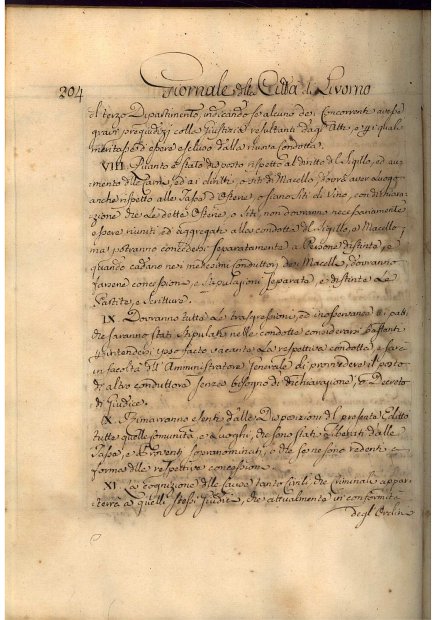 204 Giornale della Città di Livorno
al terzo Dipartimento indicando se alcuno dei Concorrenti avesse
gravi pregiudizi colla Giustizia resultanti dagl'Atti, e gli quali
meritasse d'essere escluso dalla nuova condotta.
VIII. Quanto è stato disposto rispetto al diritto del Sigillo, ed au-
mento delle Carni, ed ai diritti, o siti di Macello, dovrà aver luogo
anche rispetto alle Tasse d'Osterie, o siano Siti di Vino, con dichiara-
zione che le dette Osterie, o Siti, non dovranno necessariamente
essere riuniti, ed aggregati alla condotta del Sigillo, e Macello,
ma potranno concedersi separatamente a Persone distinte, e
quando cadano nei medesimi conduttori dei Macelli, dovranno
farsene concessioni, e stipulazioni separate, e distinte le
Partite, e Scritture.
IX. Dovranno tutte le trasgressioni, ed inosservanze ai patti
che saranno stati stipulati nelle condotte considerarsi bastanti
per intendersi ipso facto vacante la respettiva condotta, e sarà
in facoltà dell'Amministratore Generale di provvedere il posto
di altro conduttore senza bisogno di dichiarazione, o Decreto
di Giudice.
X. Rimarranno esenti dalle Disposizioni del presente Editto
tutte quelle comunità, e Luoghi, che sono stati liberati dalle
Tasse, e Proventi sopranominati, o che se ne sono redenti a
forma delle respettive concessioni.
XI. La cognizione delle cause tanto civili, che criminali appar-
terrà a quelli stessi Giudici, che attualmente in conformità
degl'Ordini